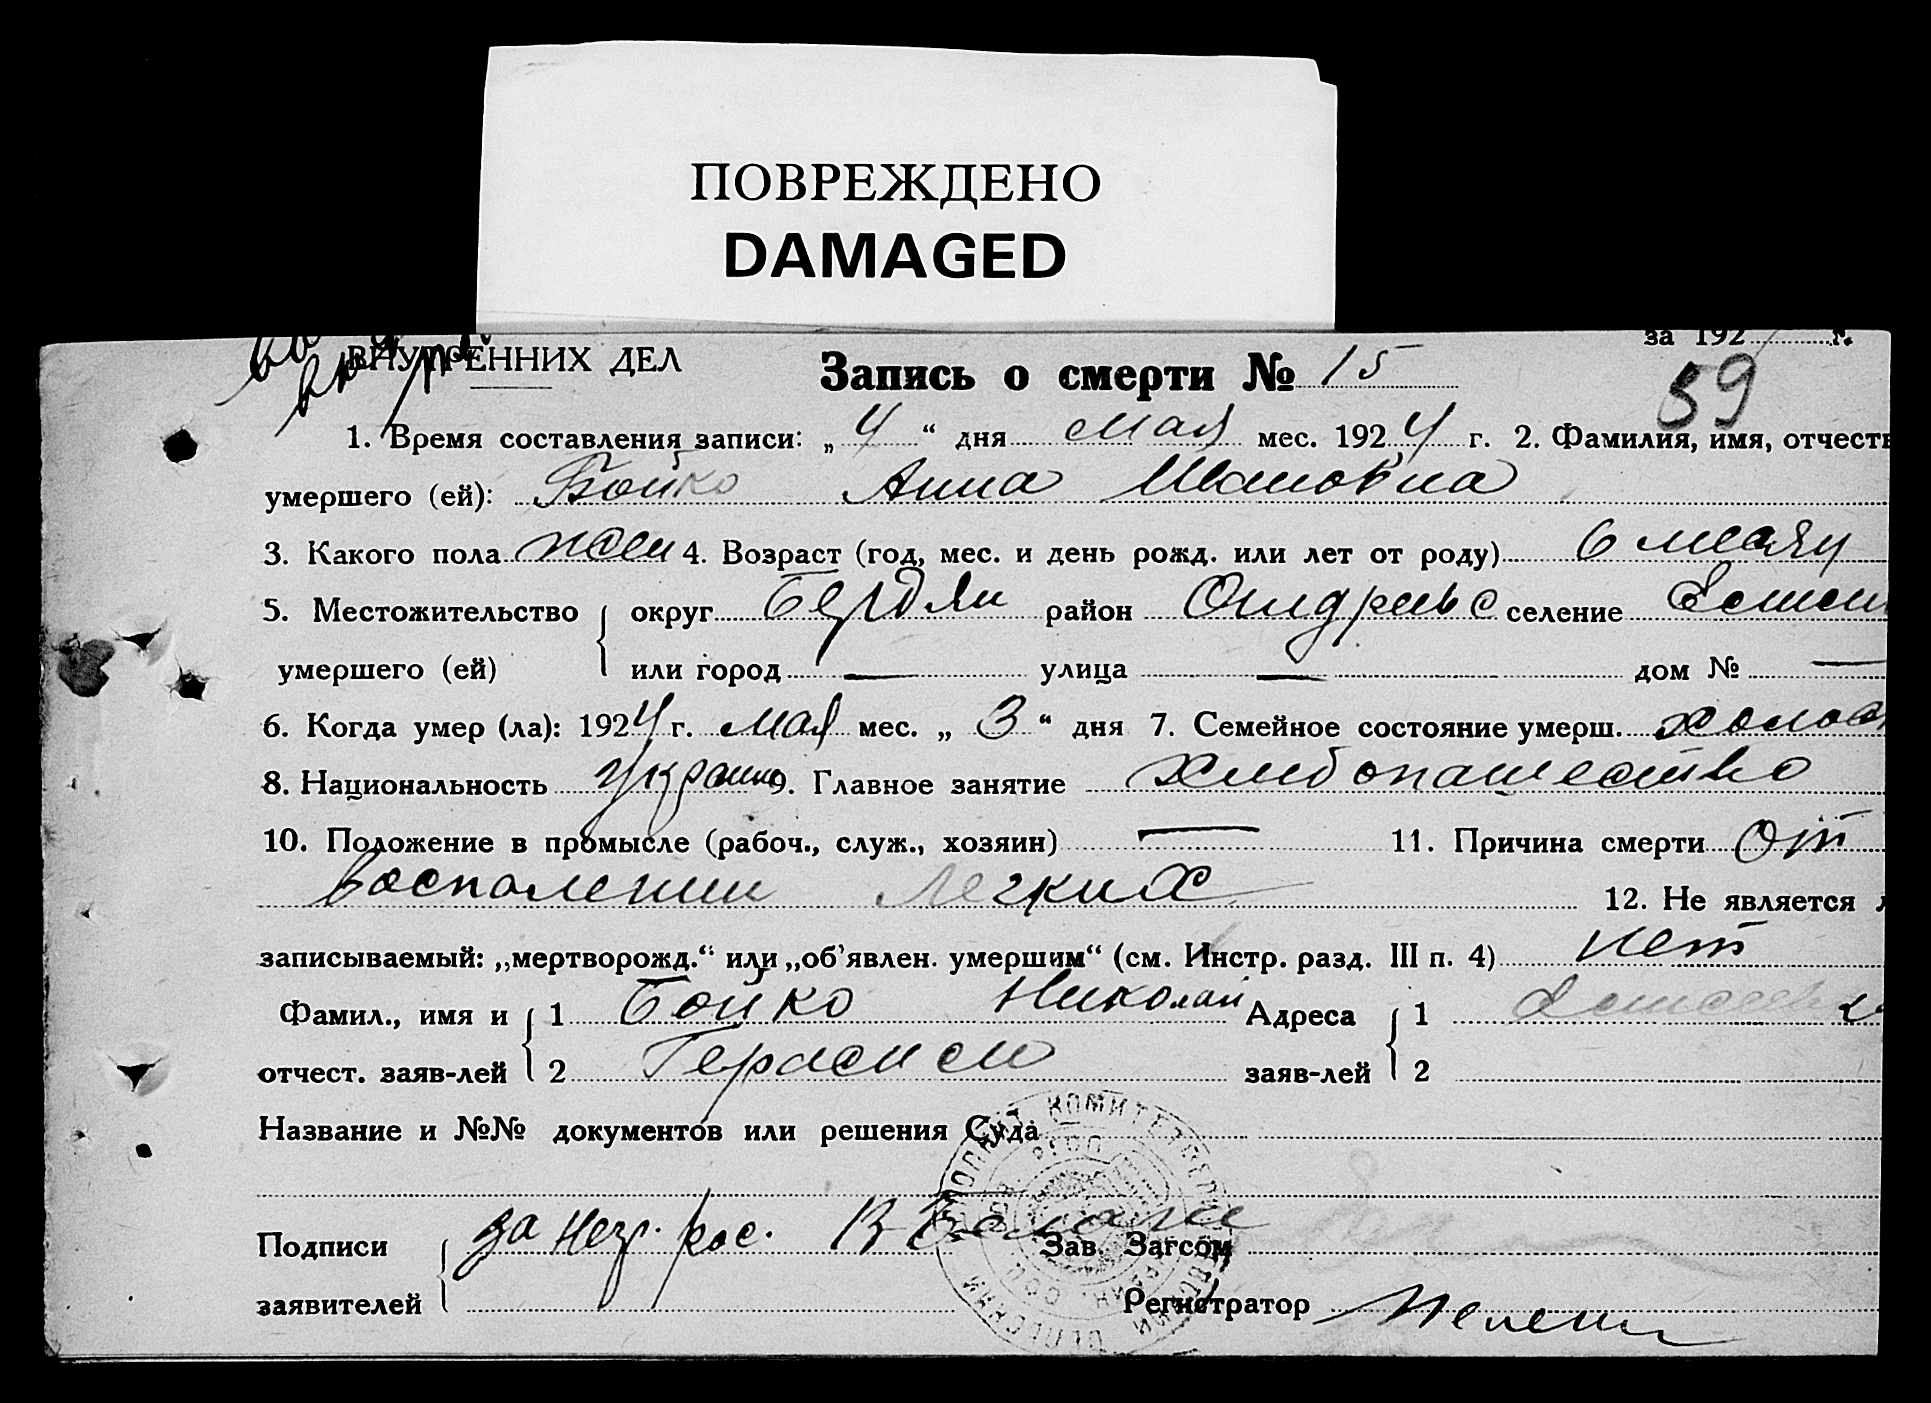 ПОВРЕЖДЕНО
DAMAGED
за 192 г.
ВНУТРЕННИХ ДЕЛ
Запись о смерти № 15
59
1. Время составления записи: „4“ дня мая мес. 1924 г. 2. Фамилия, имя, отчеств
умершего (ей): Бойко Анна Ивановна
3. Какого пола жен 4. Возраст (год, мес. и день рожд. или лет от роду) 6 месяц
5. Местожительство округ Бердян район Андреевс селение
умершего (ей) или город — улица — дом № —
6. Когда умер (ла): 1924 г. мая мес. „3“ дня 7. Семейное состояние умерш. холост
8. Национальность украин 9. Главное занятие хлебопашество
10. Положение в промысле (рабоч., служ., хозяин) — 11. Причина смерти от
воспалении легких 12. Не является л
записываемый: „мертворожд.“ или „об’явлен. умершим“ (см. Инстр. разд. III п. 4) нет
Фамил., имя и 1 Бойко Николай Адреса 1
отчест. заяв-лей 2 Герасим заяв-лей 2
Название и №№ документов или решения Суда
Подписи за негр. рос. Зав. Загсом
заявителей Регистратор